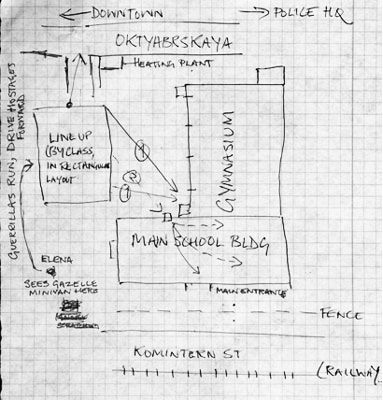 DOWNTOWN
POLICE HQ
OKTYABRSKAYA
HEATING PLANT
GUERRILLAS RUN, DRIVE HOSTAGES
FORWARD
LINE UP
(BY CLASS,
IN RECTANGULAR
LAYOUT
1
2
GYMNASIUM
MAIN SCHOOL BLDG
ELENA
SEES GAZELLE
MINIVAN HERE
MAIN ENTRANCE
FENCE
KOMINTERN ST
(RAILWAY